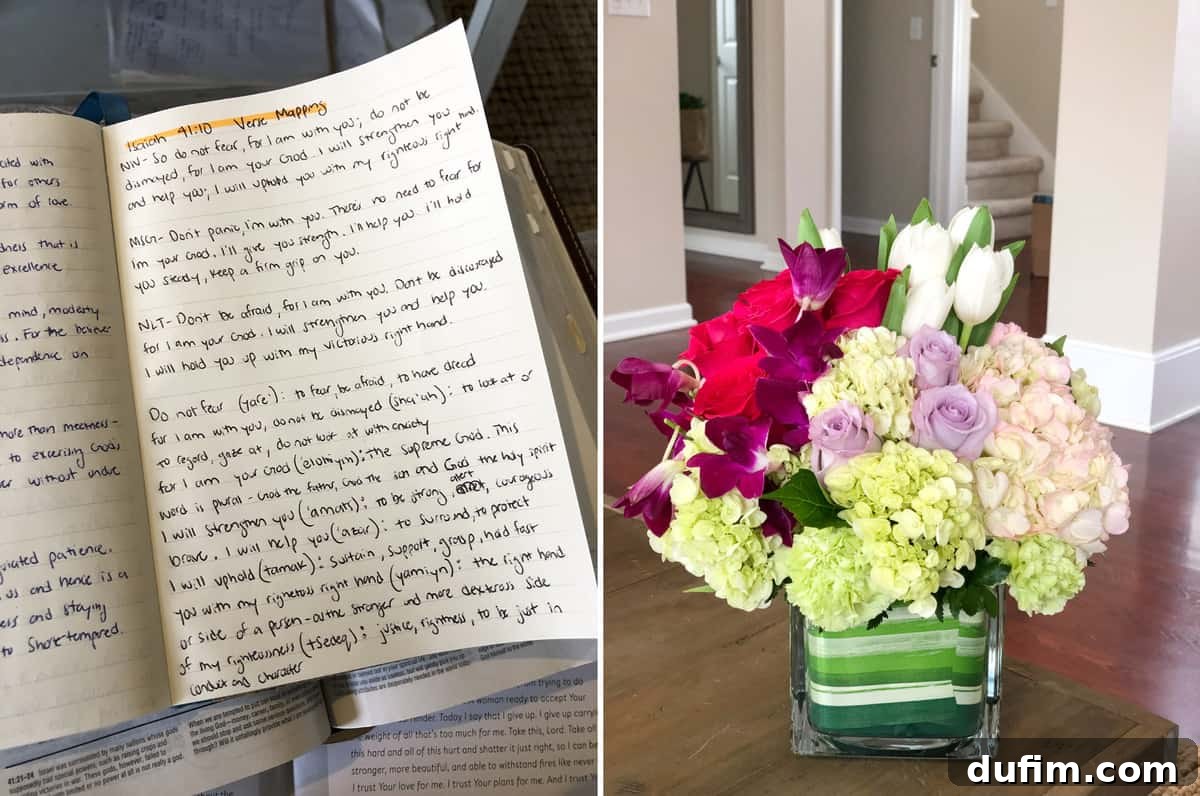 cated with
for others
orm of love.
dness that is
excellence
mind, modesty
s. For the believer
dependence on
more than meekness-
to exercising God's
er without undue
patience.
us and hence is a
ess and staying
to short-tempered.
Isaiah 41:10 Verse Mapping
NIV- So do not fear, for I am with you; do not be
dismayed, for I am your God. I will strengthen you
and help you; I will uphold you with my righteous right hand.
MSG- Don't panic, I'm with you. There's no need to fear for
I'm your God. I'll give you strength. I'll help you. I'll hold
you steady, keep a firm grip on you.
NLT- Don't be afraid, for I am with you. Don't be discouraged
for I am your God. I will strengthen you and help you.
I will hold you up with my victorious right hand.
Do not fear (yare'): to fear, be afraid, to have dread
for I am with you, do not be dismayed (sha'ah): to look at or
to regard, gaze at, do not look at with anxiety
for I am your God ('elohiym): the supreme God. This
word is plural - God the father, God the son and God the holy spirit
I will strengthen you ('amats): to be strong, alert, courageous
brave. I will help you ('azar): to surround, to protect
I will uphold (tamak): sustain, support, grasp, hold fast
you with my righteous right hand (yamiyn): the right hand
or side of a person-as the stronger and more dexterous side
of my righteousness (tsedeq): justice, rightness, to be just in
conduct and character
41:21-24 Israel was surrounded by many nations whose gods
supposedly had special powers, such as raising crops and
victories in war. These gods, however, failed to
no power at all is not really a god.
When we are tempted to put
the living God—money, career,
we should stop and ask some serious
through? Will it unfailingly provide what I am
trying to do
woman ready to accept Your
Today I say that I give up. I give up carry
weight of all that's too much for me. Take this, Lord. Take all
this hard and all of this hurt and shatter it just right, so I can be
stronger, more beautiful, and able to withstand fires like never
I trust Your love for me. I trust Your plans for me. And I trust
dufim.com